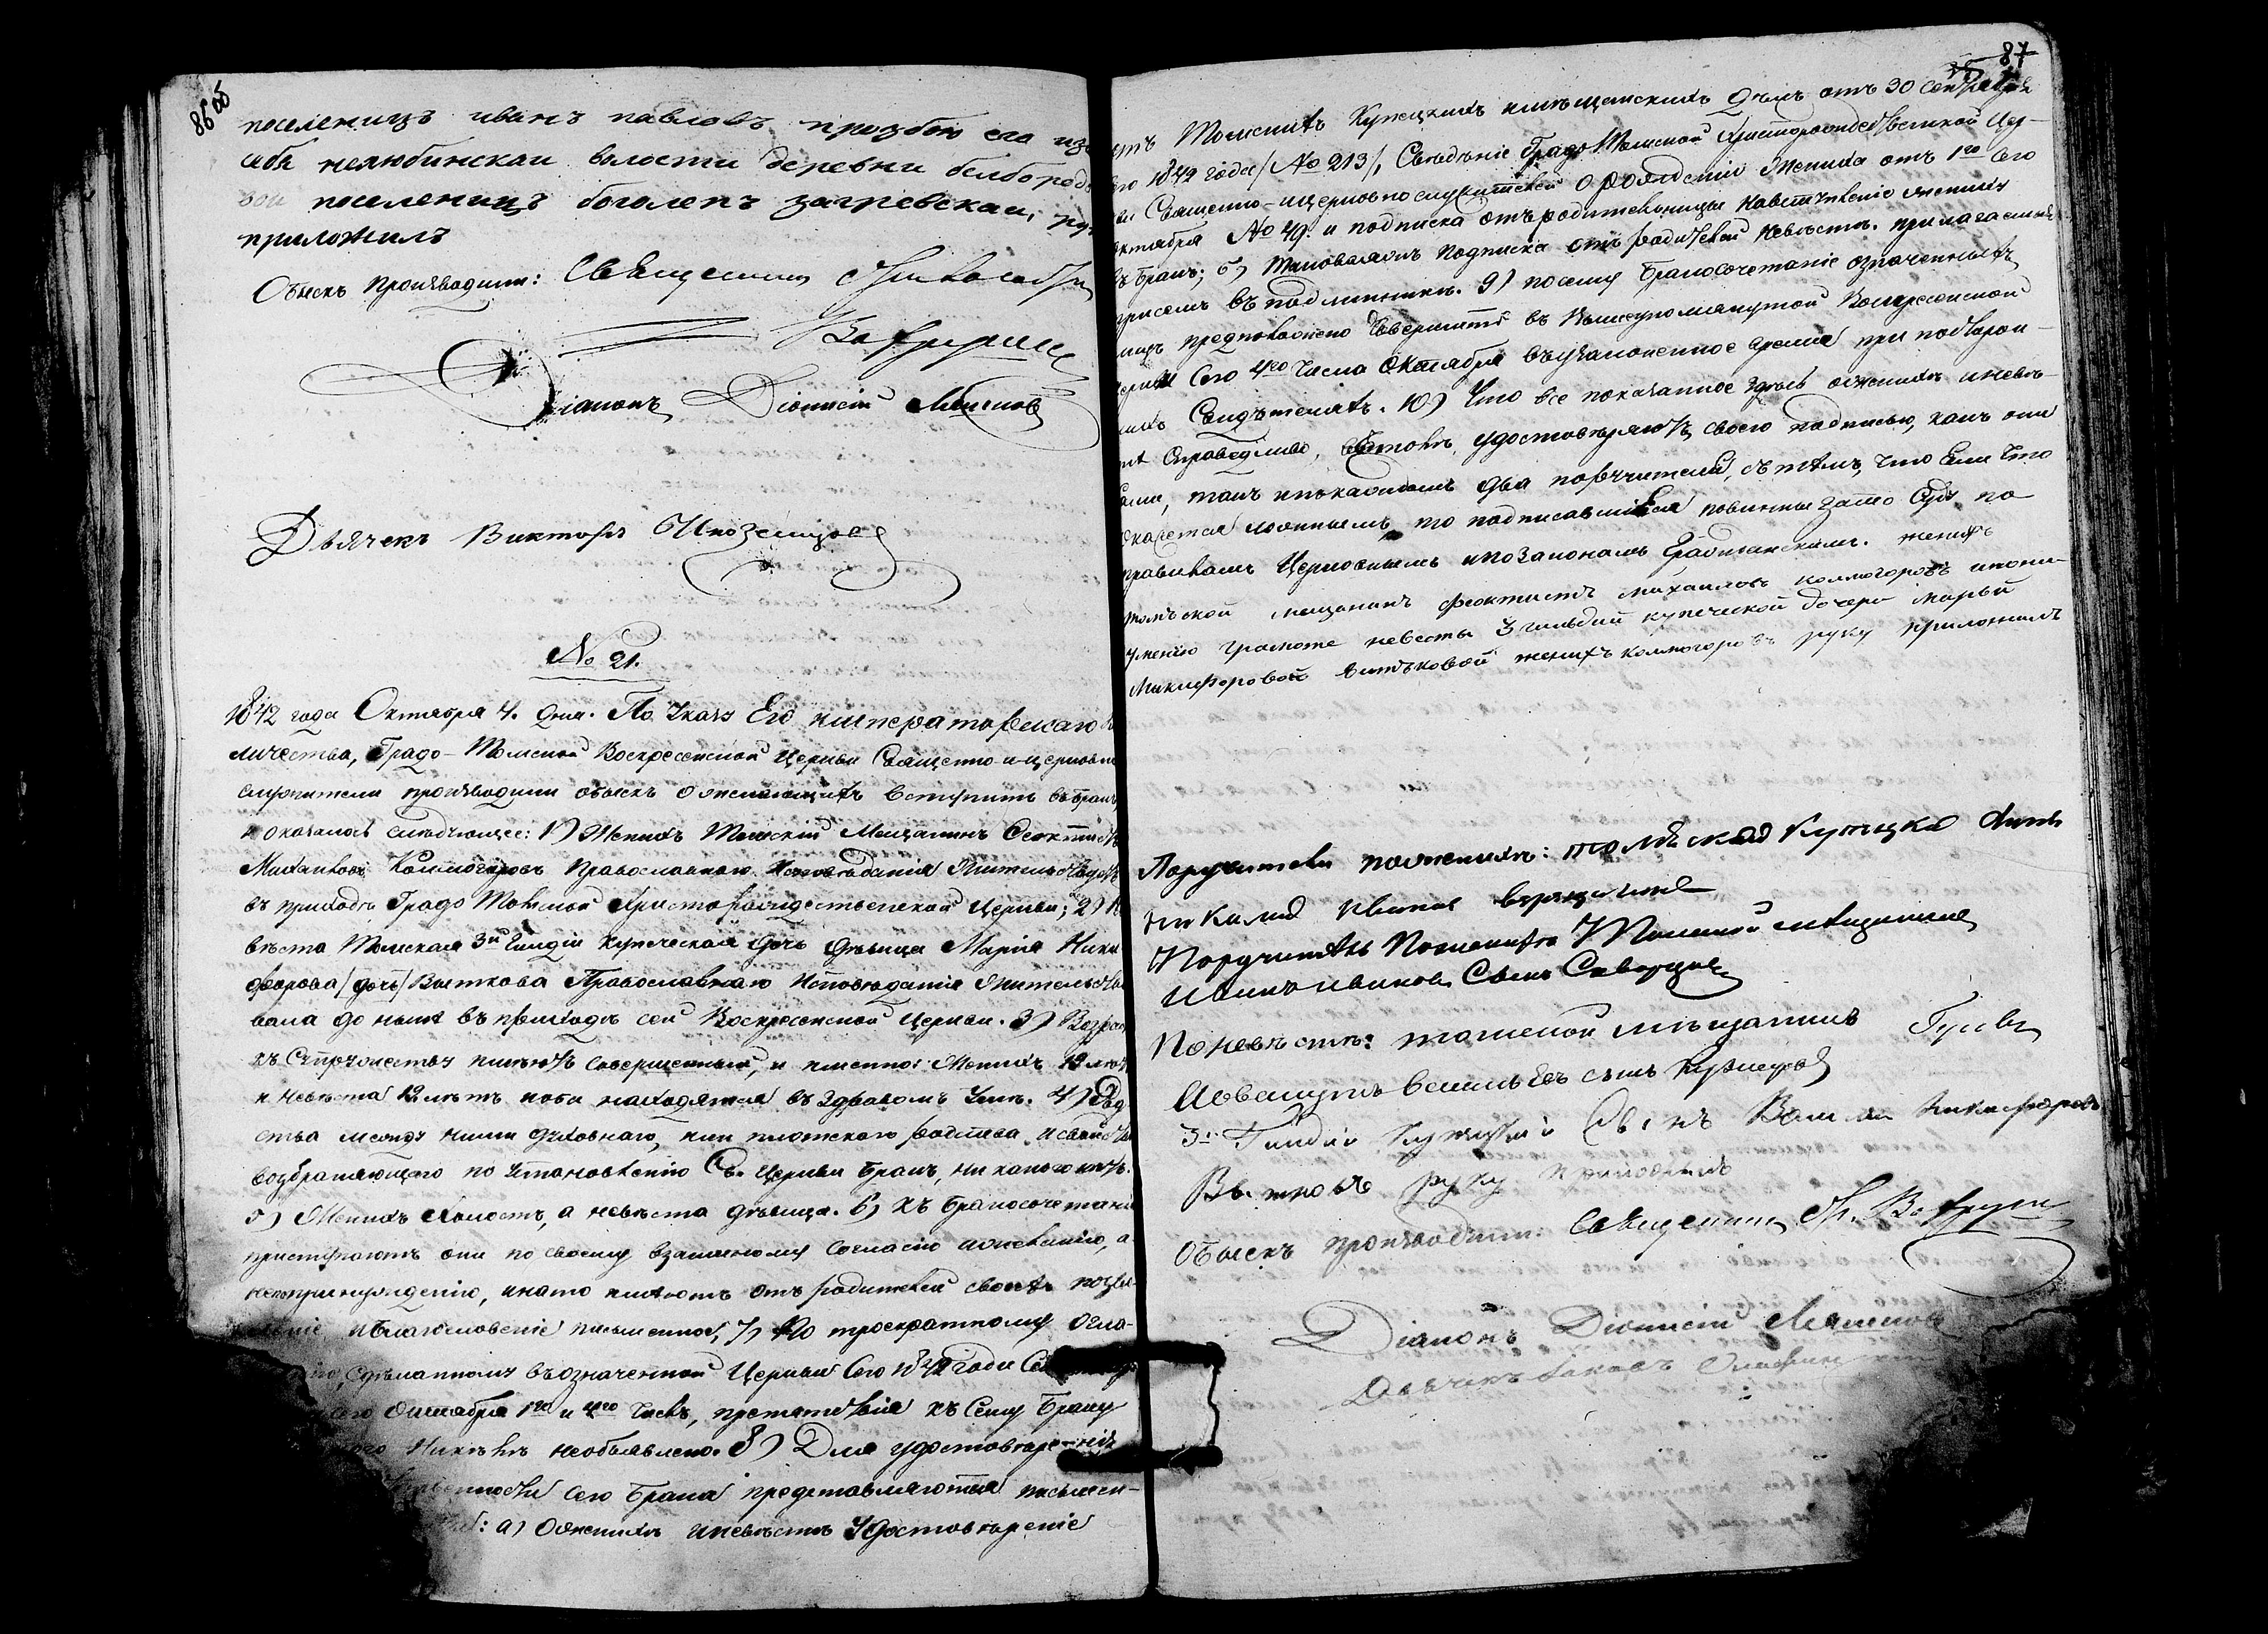 86 об
поселенецъ иванъ павловъ прозбою его из
себя нелюбинскаи волости деревни белобород
вои поселенецъ боголепъ загревскаи, ру
приложилъ
Обыскъ производили: Священникъ
Вавру
Діаконъ Діонисій
Дьячекъ Викторъ Иноземцовъ
№ 21.
1842 года Октября 4. дня. По Указу Его императорскаго в
личества, Градо-Томской Воскресенской Церкви Священно-и-церковно
служители производили обыскъ о желающихъ вступить въ бракъ
и оказалось слѣдующее: 1) Женихъ Томскій Мещанинъ Феоктистъ
Михаиловъ Колмогоровъ Православнаго Исповѣданія Жительствуетъ
въ приходѣ Градо Томской Христорождественской Церкви; 2) Не
вѣста Томская 3й Гилдіи купеческая дочь дѣвица Марія Ники
форова /дочь/ Вяткова Православнаго Исповѣданія Жительство
вала до нынѣ въ приходѣ сей Воскресенской Церкви. 3) Возрас
къ Супружеству имѣютъ совершенный, и именно: Женихъ лѣтъ
и невѣста лѣтъ и оба находятся въ здравомъ Умѣ. 4) Род
ства между ними духовнаго, или плотскаго родства и свойства
возбраняющаго по Установленію Св. Церкви бракъ, никакого нѣтъ.
5) Женихъ Холостъ, а невѣста дѣвица. 6) Къ бракосочетанію
приступаютъ они по своему взаимному согласію и желанію, а
не по принужденію, и на то имѣютъ отъ родителей своихъ позво-
леніе и благословеніе письменное, 7) По троекратному огла-
сдѣланному въ означенной Церкви сего 1842 года
сего Октября 1го и 4го числъ, препятствія къ сему браку
никѣмъ необъявлено. 8) Для удостовѣренія
сего брака представляются письмен-
: а) О женихѣ и невѣстѣ Удостовѣреніе
87
отъ Томскихъ Купецкихъ и мѣщанскихъ Дѣлъ отъ 30 Сентября
1842 года /№ 213/, Свѣдѣніе Градо Томской Христорождественской Цер-
Священно-и церковнослужителей о рожденіи Жениха отъ 1го сего
октября № 49. и подписка отъ родительницы на вступленіе жениха
въ бракъ; б) Таковаяжъ подписка отъ родителей Невѣсты. прилагаемыя
при семъ въ подлинникѣ. 9) посему бракосочетаніе означенныхъ
лицъ предположено совершить въ вышеупомянутой Воскресенской
церкви сего 4го числа Октября въ узаконенное время при посторон-
нихъ Свидѣтеляхъ. 10) Что все показанное здѣсь о женихѣ и невѣ-
стѣ справедливо, въ томъ удостовѣряютъ своею подписью, какъ они
сами, такъ и по каждомъ два поручителя, съ тѣмъ, что если что
окажется ложнымъ, то подписавшіеся повинны за то Суду по
правиламъ Церковнымъ и по законамъ Гражданскимъ. женихъ
томской мещанинъ феоктистъ михаиловъ колмогоровъ и по не-
умению грамоте невесты 3 гильдии купеческой дочери марьи
Никифоровой Вятковой женихъ колмогоровъ руку приложилъ
Поручители по женихѣ: томской Купецкой сынъ
Николай Ивановъ
Поручитель По женихѣ Томской мещанинъ
Иванъ Ивановъ Сынъ Скворцовъ
По невѣстѣ: томской мѣщанинъ
сынъ
3й Гилдіи Купецкій Сынъ Никифоровъ
Вятковъ руку приложилъ
Обыскъ производили: Священникъ
Діаконъ Діонисій
Дьячекъ Іаковъ